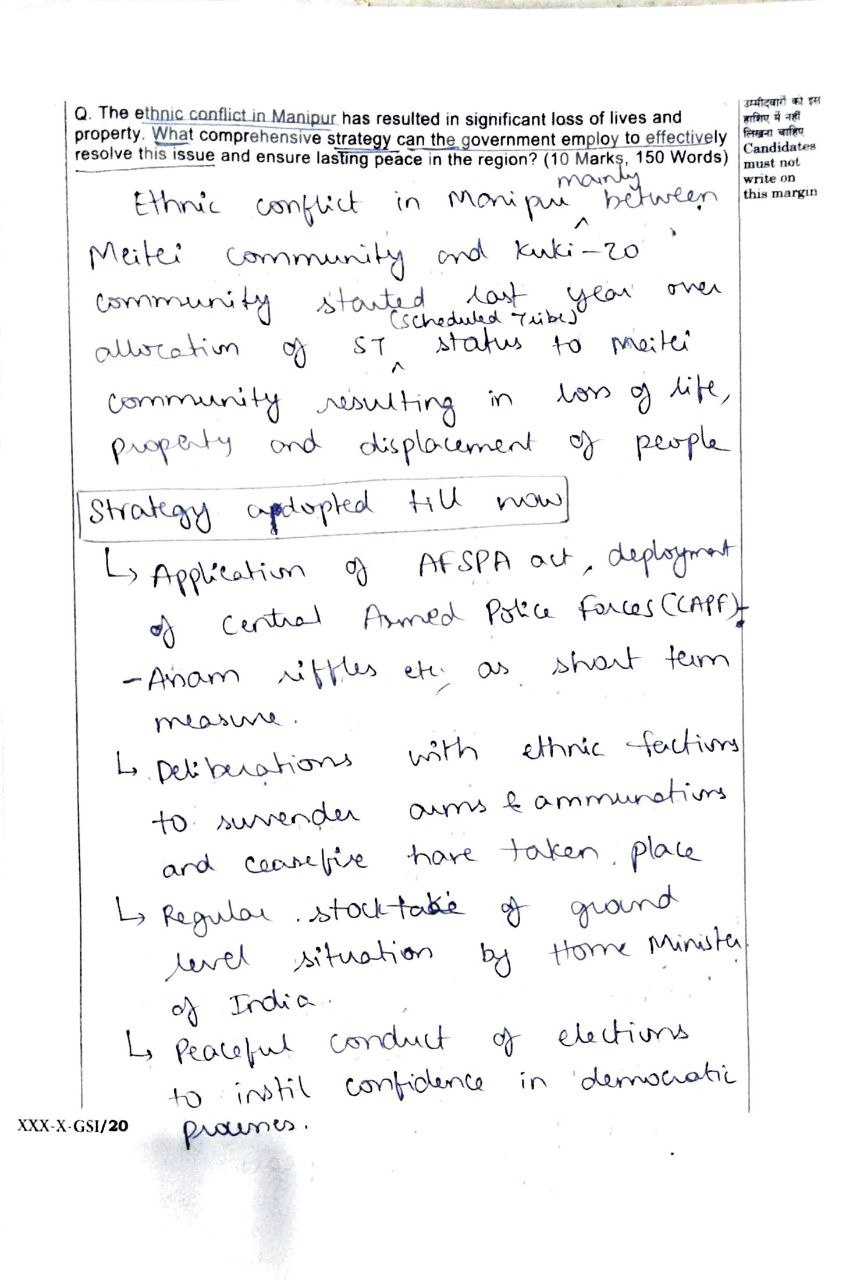 Q. The ethnic conflict in Manipur has resulted in significant loss of lives and
property. What comprehensive strategy can the government employ to effectively
resolve this issue and ensure lasting peace in the region? (10 Marks, 150 Words)
उम्मीदवारों को इस
हाशिए में नहीं
लिखना चाहिए
Candidates
must not
write on
this margin
Ethnic conflict in Manipur mainly between
Meitei community and Kuki-zo
community started last year over
allocation of ST (Scheduled Tribe) status to Meitei
community resulting in loss of life,
property and displacement of people
Strategy adopted till now
↳ Application of AFSPA act, deployment
of Central Armed Police Forces (CAPF)-
-Assam riffles etc. as short term
measure.
↳ Deliberations with ethnic factions
to surrender arms & ammunations
and ceasefire have taken place
↳ Regular stocktake of ground
level situation by Home Minister
of India.
↳ Peaceful conduct of elections
to instil confidence in democratic
process.
XXX-X-GSI/20